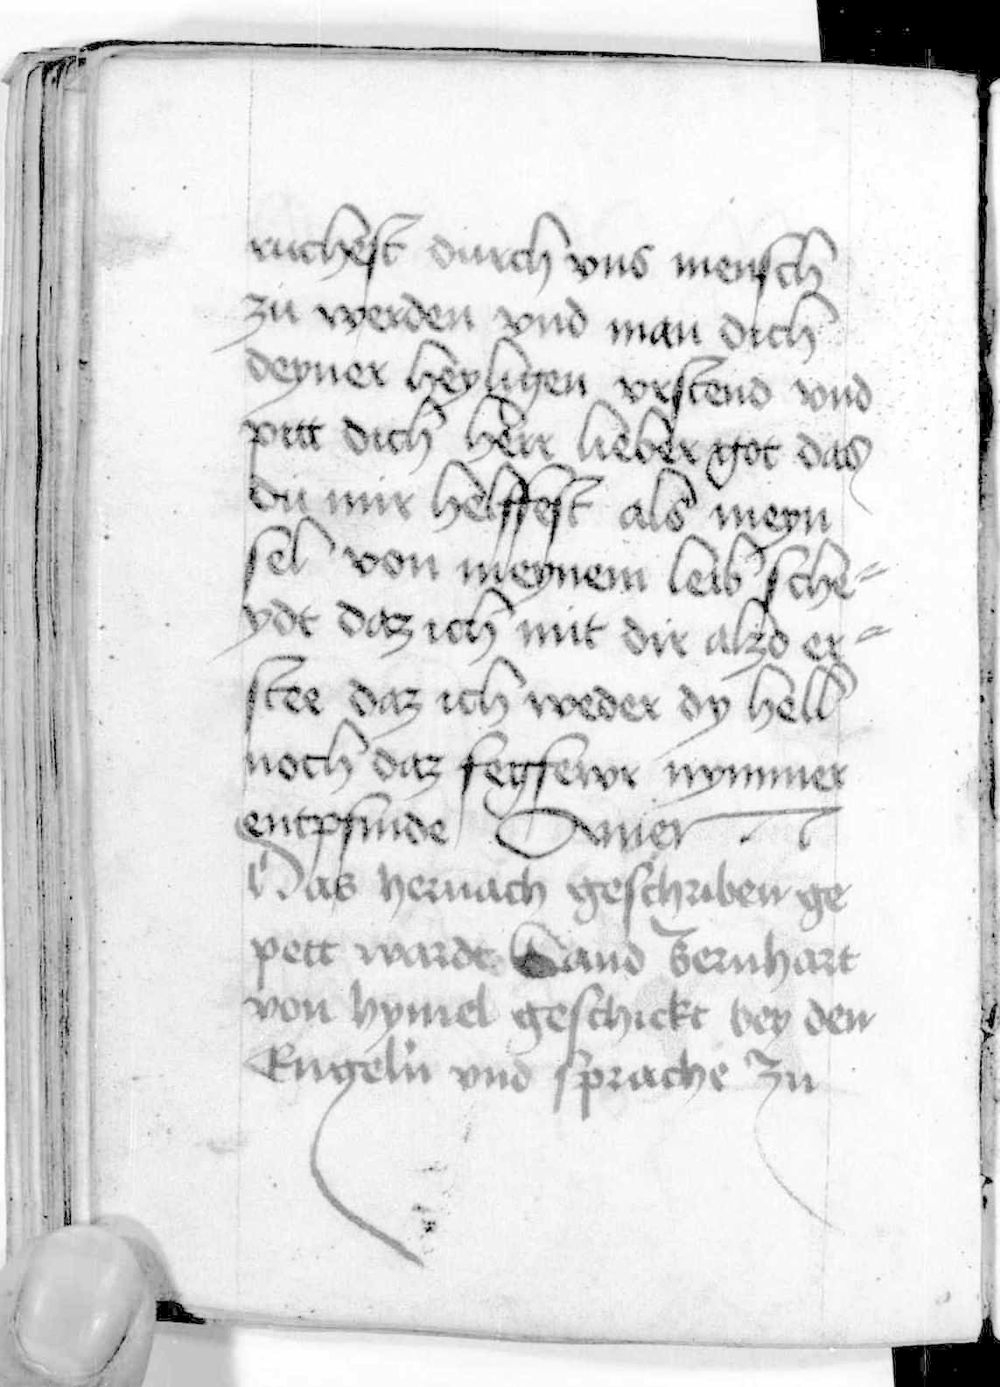 ruchest durch vns mensch
zu werden vnd man dich
deyner heyligen vrstend vnd
pitt dich herr lieber got das
du mir helffest als meyn
sel von meynem leib sche=
ydt daz ich mit dir alzo er=
stee daz ich weder dy hell
noch daz fegfewr nymmer
entpfinde Amen
Das hernach geschriben ge
pett wardt Sand Bernhart
von hymel geschickt bey den
Engeln vnd sprache zu